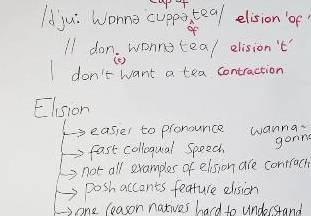 cup of
/dju: wɒnnə cuppə tea/ elision 'of'
of
// don wɒnnə tea/ elision 't'
(t)
I don't want a tea. contraction
Elision
→ easier to pronounce wanna-
→ fast colloquial speech gonna
→ not all examples of elision are contracti
→ posh accents feature elision
→ one reason natives hard to understand